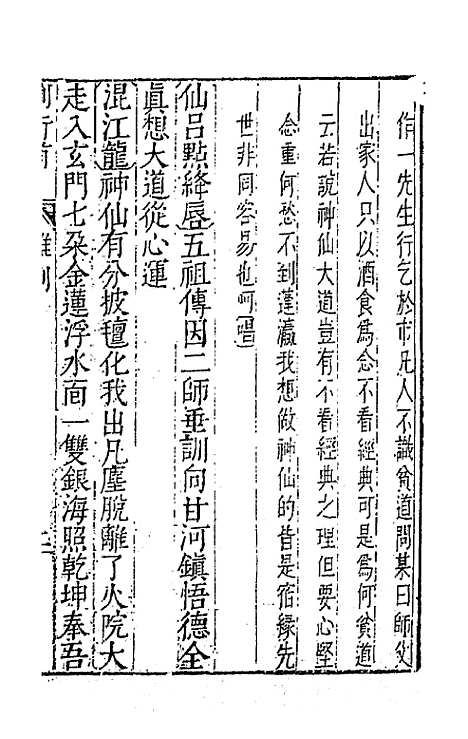 作一先生行乞於市凡人不識貧道問某曰師父
出家人只以酒食爲念不看經典可是爲何貧道
云若說神仙大道豈有不看經典之理但要心堅
念重何愁不到蓬瀛我想做神仙的皆是宿緣先
世非同容易也呵唱
仙呂點絳唇五祖傳因二師垂訓向甘河鎮悟德全
真想大道從心運
混江龍神仙有分披氊化我出凡塵脫離了火院大
走入玄門七朶金蓮浮水面一雙銀海照乾坤奉吾